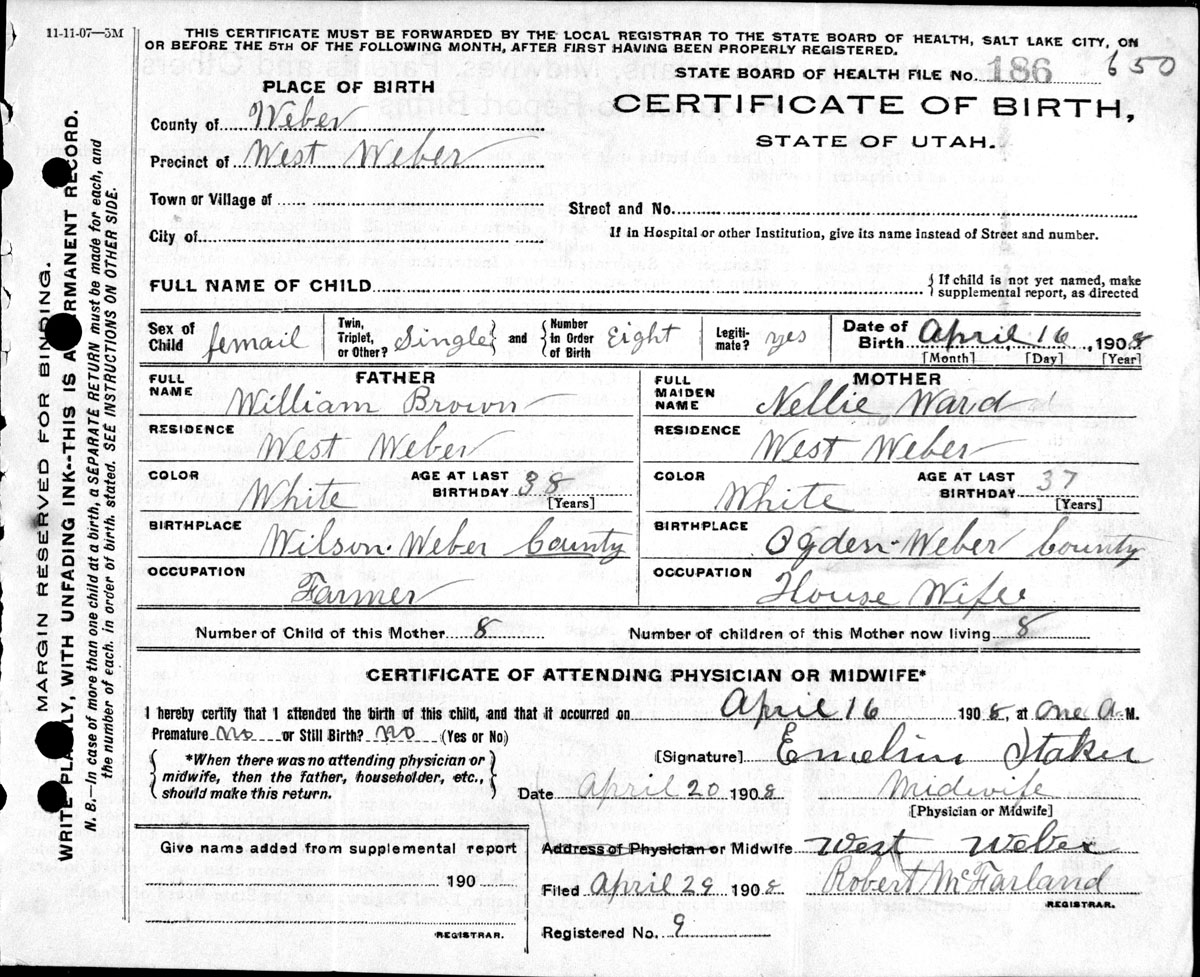 11-11-07—5M
THIS CERTIFICATE MUST BE FORWARDED BY THE LOCAL REGISTRAR TO THE STATE BOARD OF HEALTH, SALT LAKE CITY, ON
OR BEFORE THE 5TH OF THE FOLLOWING MONTH, AFTER FIRST HAVING BEEN PROPERLY REGISTERED.
STATE BOARD OF HEALTH FILE No. 186 650
PLACE OF BIRTH
CERTIFICATE OF BIRTH,
STATE OF UTAH.
County of Weber
Precinct of West Weber
Town or Village of
Street and No.
City of
If in Hospital or other Institution, give its name instead of Street and number.
FULL NAME OF CHILD
{ If child is not yet named, make
supplemental report, as directed
Sex of Child femail
Twin, Triplet, or Other? Single } and { Number in Order of Birth Eight
Legiti-mate? yes
Date of Birth April 16, 1908
[Month] [Day] [Year]
FATHER
FULL NAME William Brown
RESIDENCE
West Weber
COLOR White AGE AT LAST BIRTHDAY 38
[Years]
BIRTHPLACE
Wilson-Weber County
OCCUPATION
Farmer
MOTHER
FULL MAIDEN NAME Nellie Ward
RESIDENCE
West Weber
COLOR White AGE AT LAST BIRTHDAY 37
[Years]
BIRTHPLACE
Ogden-Weber County
OCCUPATION
House Wife
Number of Child of this Mother 8 Number of children of this Mother now living 8
CERTIFICATE OF ATTENDING PHYSICIAN OR MIDWIFE*
I hereby certify that I attended the birth of this child, and that it occurred on April 16 1908, at one A. M.
Premature no or Still Birth? no (Yes or No)
{ *When there was no attending physician or
midwife, then the father, householder, etc.,
should make this return. }
[Signature] Emeline Staker
Date April 20 1908 Midwife
[Physician or Midwife]
Give name added from supplemental report
190
REGISTRAR.
Address of Physician or Midwife West Weber
Filed April 29 1908 Robert McFarland
REGISTRAR.
Registered No. 9
MARGIN RESERVED FOR BINDING.
WRITE PLAINLY, WITH UNFADING INK--THIS IS A PERMANENT RECORD.
N. B.—In case of more than one child at a birth, a SEPARATE RETURN must be made for each, and
the number of each, in order of birth, stated. SEE INSTRUCTIONS ON OTHER SIDE.